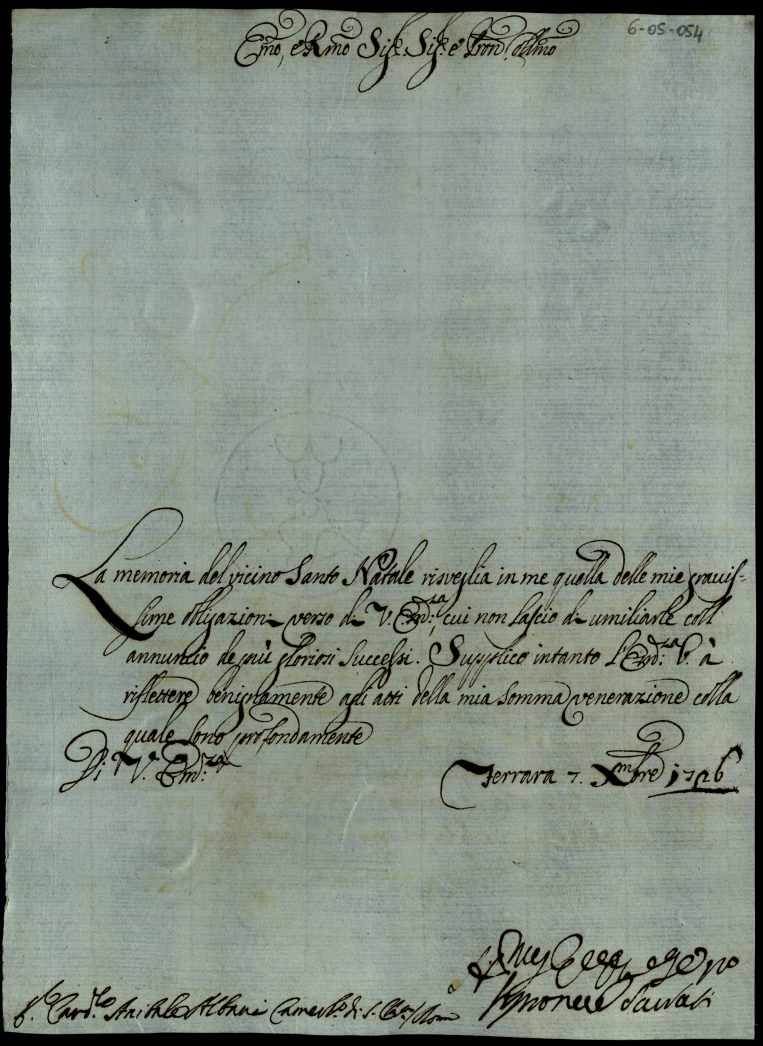 6-05-054
Emo, e Rmo Sig.r Sig.r e Pron. Collmo
La memoria del vicino Santo Natale risveglia in me quella delle mie gravis-
sime obligazioni verso di V. Em.za, cui non lascio di umiliarle coll
annuncio de più gloriosi successi. Supplico intanto l'Em.za V. à
riflettere benignamente agli atti della mia somma venerazione colla
quale sono profondamente
Di V. Em.za
Ferrara 7. Xmbre 1726
S.r Card.le Anibale Albani Camerl.o di S. Chiesa Roma